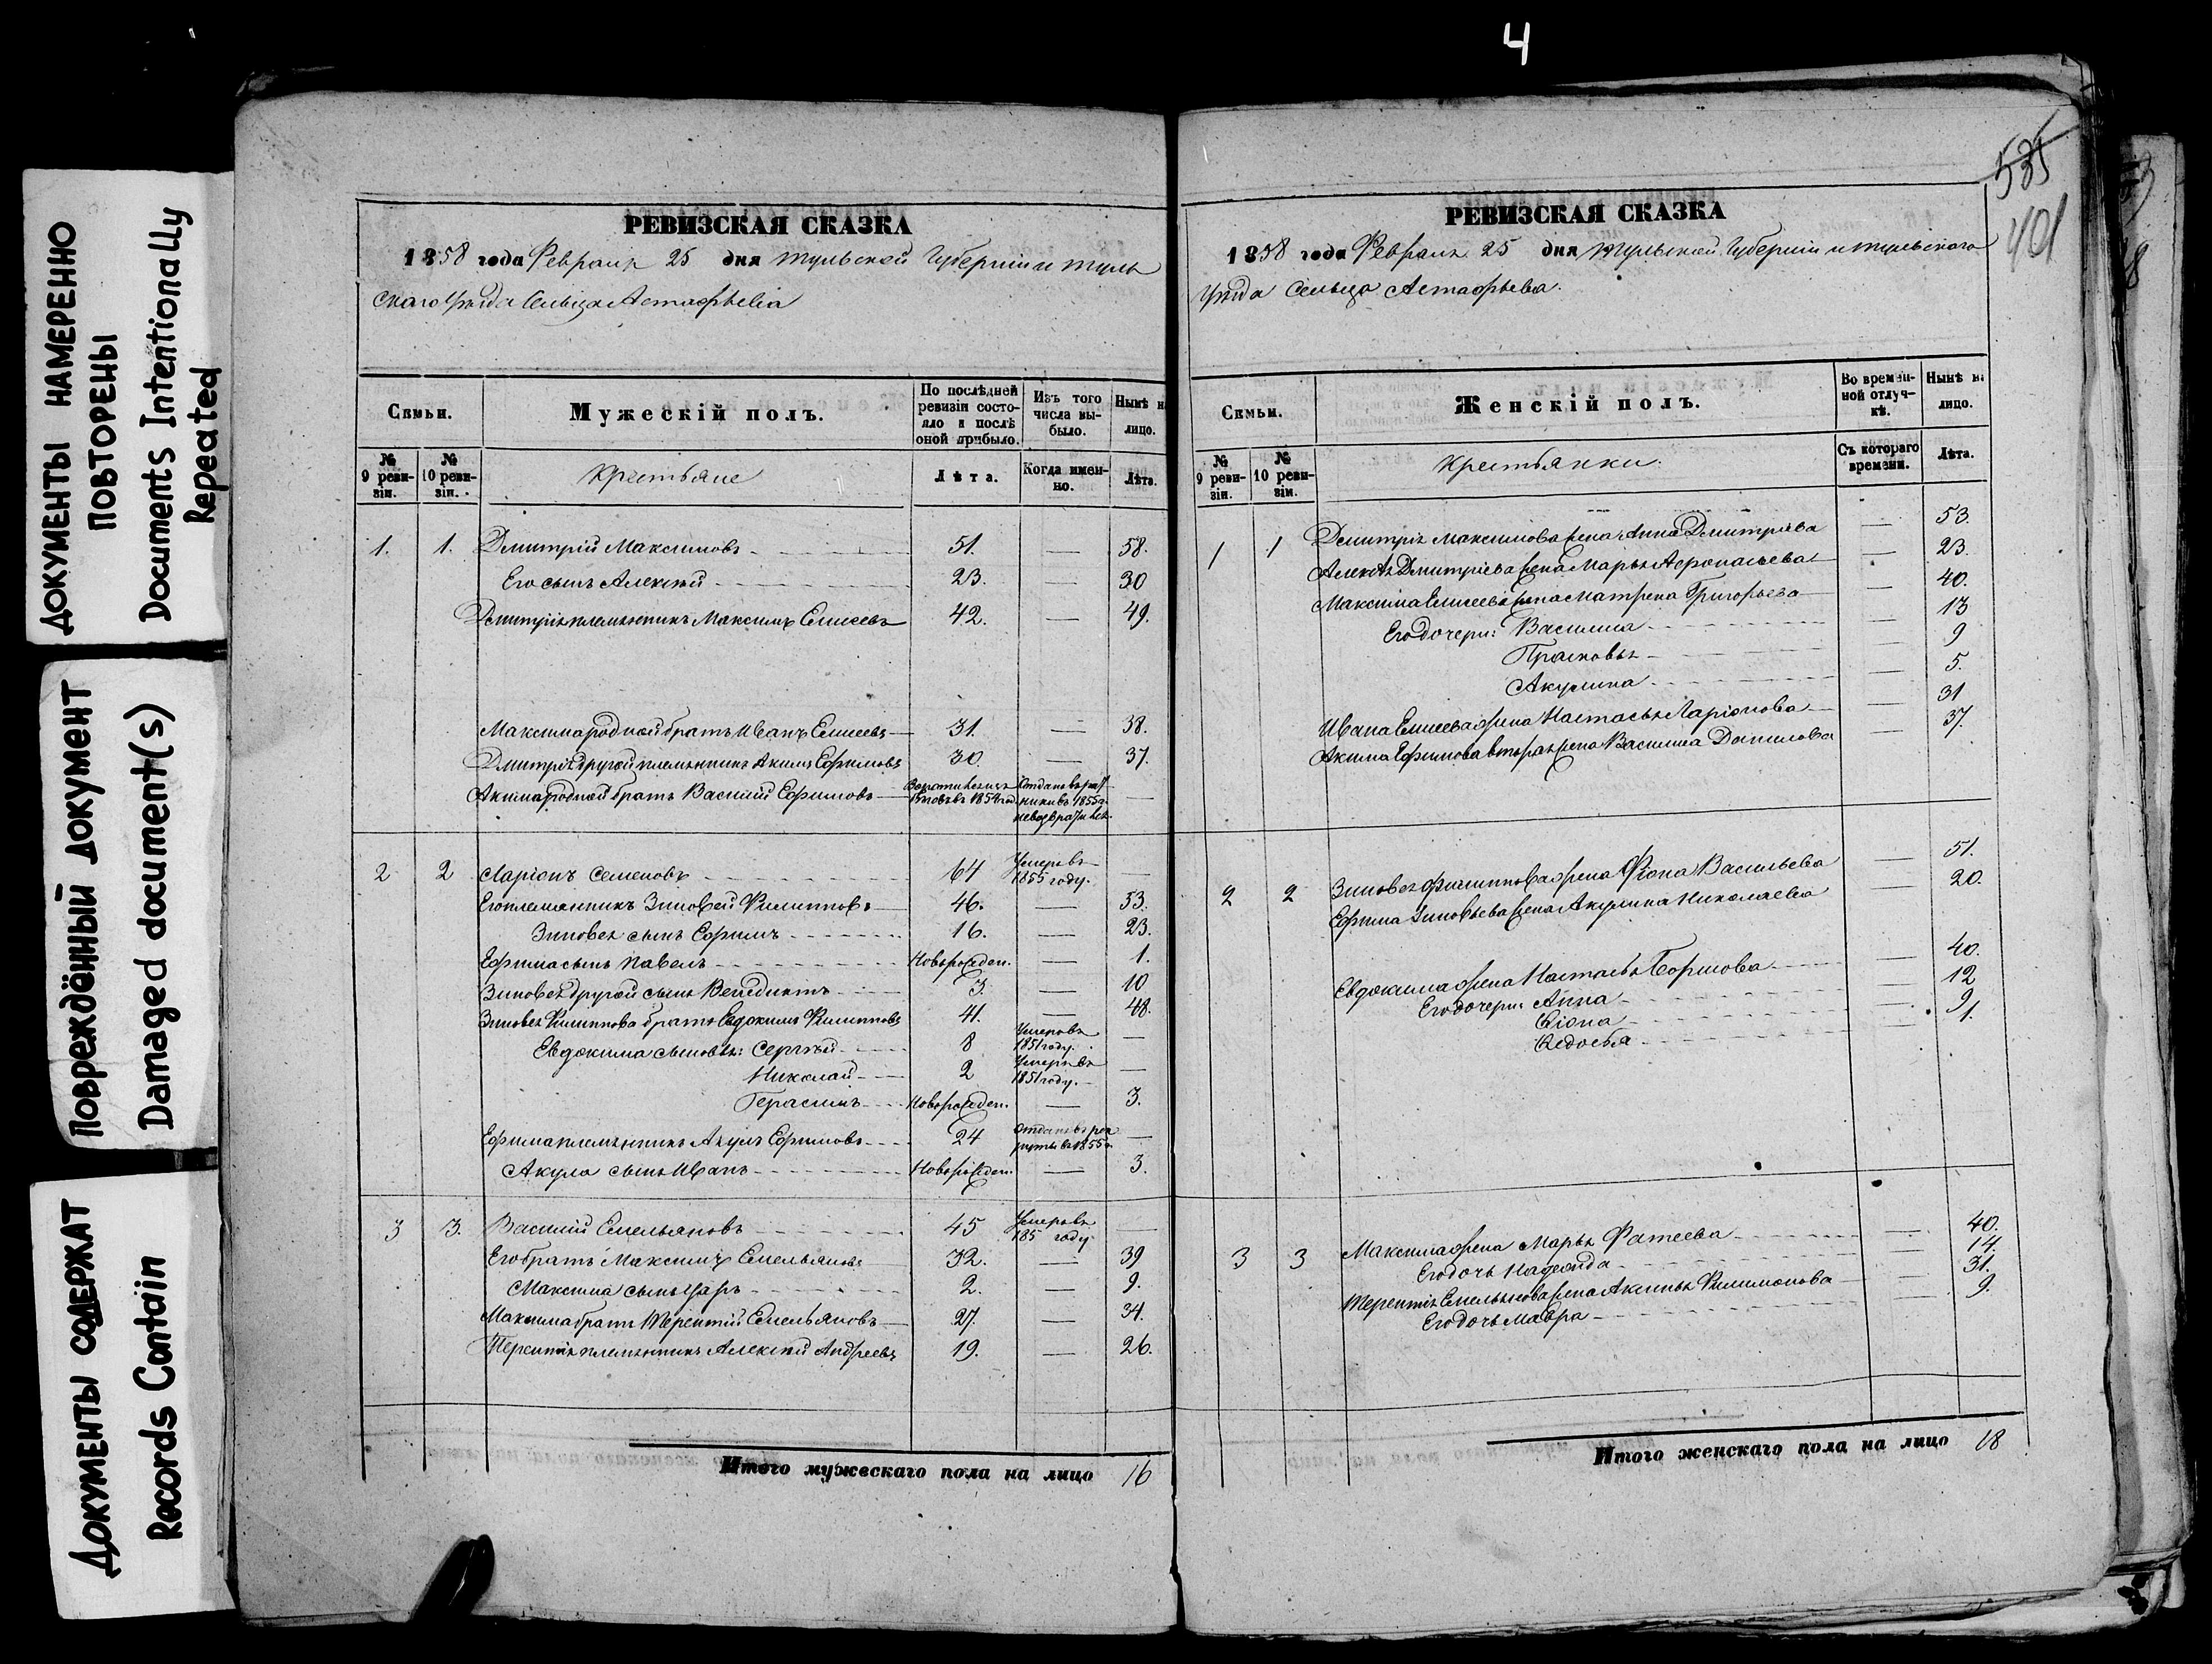 4
ДОКУМЕНТЫ НАМЕРЕННО
ПОВТОРЕНЫ
Documents Intentionally
Repeated
Повреждённый документ
Damaged document(s)
Документы содержат
Records Contain
РЕВИЗСКАЯ СКАЗКА
1858 года Февраля 25 дня Тульской Губернiи и Туль
скаго Уѣзда Сельца Астафьева
Семьи.
Мужескiй полъ.
По послѣдней ревизiи состояло и послѣ оной прибыло.
Изъ того числа выбыло.
Нынѣ на лицо.
№ 9 ревизiи.
№ 10 ревизiи.
Крестьяне
Лѣта.
Когда именно.
Лѣта.
1. 1. Дмитрiй Максимовъ 51. — 58.
Его сынъ Алексѣй 23. — 30
Дмитрiя племянникъ Максимъ Елисеевъ 42. — 49.
Максима родной братъ Иванъ Елисеевъ 31. — 38.
Дмитрiя другой племянникъ Акимъ Ефимовъ 30. — 37.
Акима родной братъ Василiй Ефимовъ 1854 год. 1855 —
2 2 Ларiонъ Семеновъ 64 Умеръ въ 1855 году. —
Его племянникъ Зиновей Филипповъ 46. — 53.
Зиновея сынъ Ефимъ 16. — 23.
Ефима сынъ Павелъ Новорожден. — 1.
Зиновея другой сынъ Венедиктъ 3. — 10
Зиновея Филипова братъ Евдокимъ Филиповъ 41. — 48.
Евдокима сыновья: Сергѣй 8 Умеръ въ 1851 году. —
Николай 2 Умеръ въ 1851 году. —
Герасимъ Новорожден. — 3.
Ефима племянникъ Акулъ Ефимовъ 24 Отданъ въ рек
руты въ 1855 г. —
Акула сынъ Иванъ Новорожден. — 3.
3 3. Василiй Емельяновъ 45 Умеръ въ 185 году —
Его братъ Максимъ Емельяновъ 32. — 39
Максима сынъ 2. — 9.
Максима братъ Терентiй Емельяновъ 27. — 34.
Терентiя племянникъ Алексѣй Андреевъ 19. — 26.
Итого мужескаго пола на лицо 16
535
401
РЕВИЗСКАЯ СКАЗКА
1858 года Февраля 25 дня Тульской Губернiи и Тульскаго
Уѣзда Сельца Астафьева.
Семьи.
Женскiй полъ.
Во временной отлучкѣ.
Нынѣ на лицо.
№ 9 ревизiи.
№ 10 ревизiи.
Крестьянки.
Съ котораго времени.
Лѣта.
1 1 Дмитрiя Максимова жена Анна Дмитрiева — 53.
Алексѣя Дмитрiева жена Марья Афонасьева — 23.
Максима Елисеева жена Матрена Григорьева — 40.
Его дочери: Василиса — 13
Прасковья — 9
Акулина — 5.
Ивана Елисеева жена Настасья Ларiонова — 31
Акима Ефимова вторая жена Василиса Данилова — 37.
2 2 Зиновея Филиппова жена Фiона Васильева — 51.
Ефима Зиновьева жена Акулина Николаева — 20.
Евдокима жена Настасья Борисова — 40.
Его дочери: Анна — 12
Фiона — 9
Федосья — 1.
3 3 Максима жена Марья Фатеева — 40.
Его дочь Надежда — 14.
Терентiя Емельянова жена Аксинья Филимонова — 31.
Его дочь Мавра — 9.
Итого женскаго пола на лицо 18